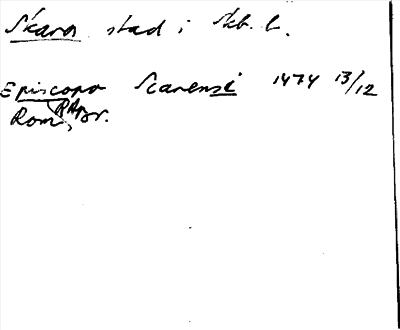 Skara stad i Skb. l.
Episcopo Scarensi 1474 13/12
Rom, RApBr.